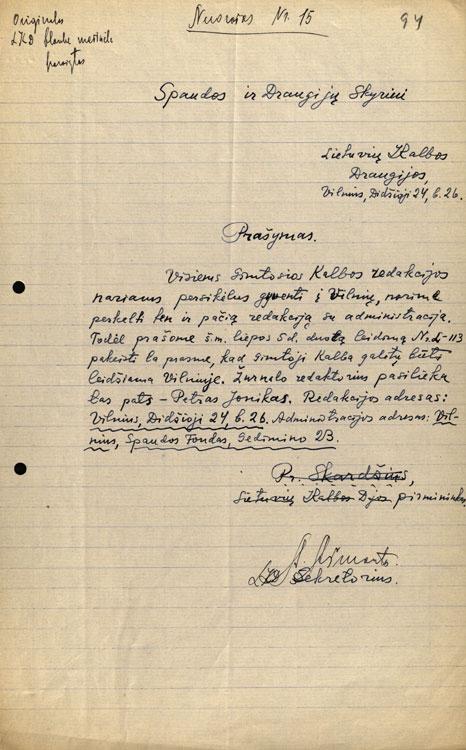 Nuorašas Nr. 15
94
Originalas
LKD blanke mašinėle
parašytas
Spaudos ir Draugijų Skyriui
Lietuvių Kalbos
Draugijos,
Vilnius, Didžioji 24, b. 26.
Prašymas.
Visiems Gimtosios Kalbos redakcijos
nariams persikėlus gyventi į Vilnių, norime
perkelti ten ir pačią redakciją su administracija.
Todėl prašome š.m. liepos 5 d. duotą leidimą Nr. L-113
pakeisti ta prasme, kad Gimtoji Kalba galėtų būti
leidžiama Vilniuje. Žurnalo redaktorius pasilieka
tas pats – Petras Jonikas. Redakcijos adresas:
Vilnius, Didžioji 24 b. 26. Administracijos adresas: Vil-
nius, Spaudos Fondas, Gedimino 23.
Pr. Skardžius,
Lietuvių Kalbos D-jos pirmininkas
A. Ašmantas
LKD Sekretorius.